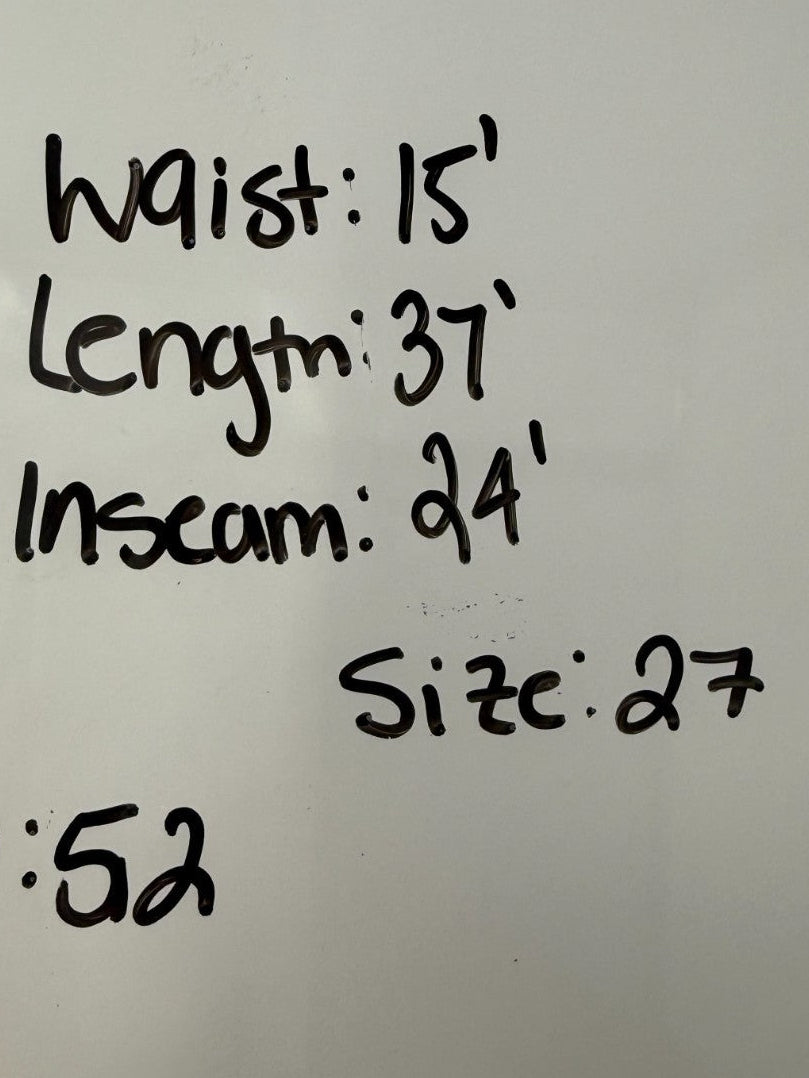 Waist: 15'
Length: 37'
Inseam: 24'
Size: 27
:52